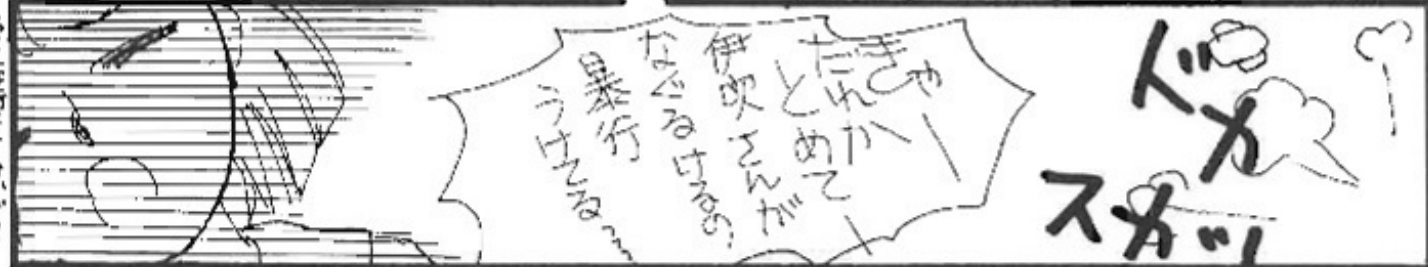 ドカ
スカッ
きゃー
だれか
とめてー
伊吹さんが
なぐるけるの、
暴行
うけてる〜